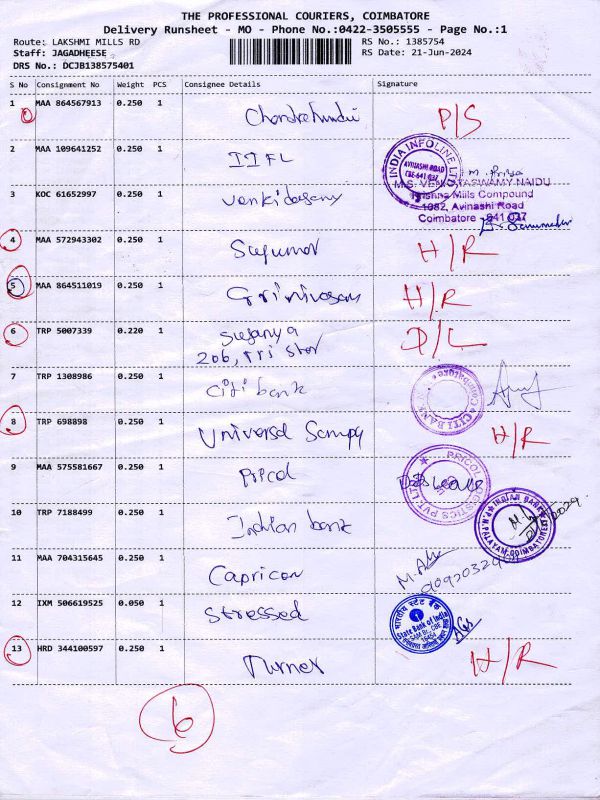 THE PROFESSIONAL COURIERS, COIMBATORE
Delivery Runsheet - MO - Phone No.:0422-3505555 - Page No.:1
Route: LAKSHMI MILLS RD
RS No.: 1385754
Staff: JAGADHEESE
RS Date: 21-Jun-2024
DRS No.: DCJB138575401
S No Consignment No Weight PCS Consignee Details Signature
1 MAA 864567913 0.250 1 P/S
2 MAA 109641252 0.250 1 IIFL
INDIA INFOLINE LTD
AVINASHI ROAD
CBE-641 037
M. Priya
3 KOC 61652997 0.250 1 Venkidasany
M.S. VENKATASWAMY NAIDU
Krishna Mills Compound
1082, Avinashi Road
Coimbatore - 641 037
4 MAA 572943302 0.250 1 Sugumar H/R
5 MAA 864511019 0.250 1 Srinivasan H/R
6 TRP 5007339 0.220 1 Sujanya D/L
206, Tri Star
7 TRP 1308986 0.250 1 Citi bank
CITI BANK
Coimbatore
8 TRP 698898 0.250 1 Universal Sampy H/R
9 MAA 575581667 0.250 1 Pricol
PRICOL LOGISTICS PVT LTD
10 TRP 7188499 0.250 1 Indhian bank
INDIAN BANK
P.N.PALAYAM, COIMBATORE
11 MAA 704315645 0.250 1 Capricon
12 IXM 506619525 0.050 1 Stressed
भारतीय स्टेट बैंक
State Bank of India
13 HRD 344100597 0.250 1 Turner H/R
6